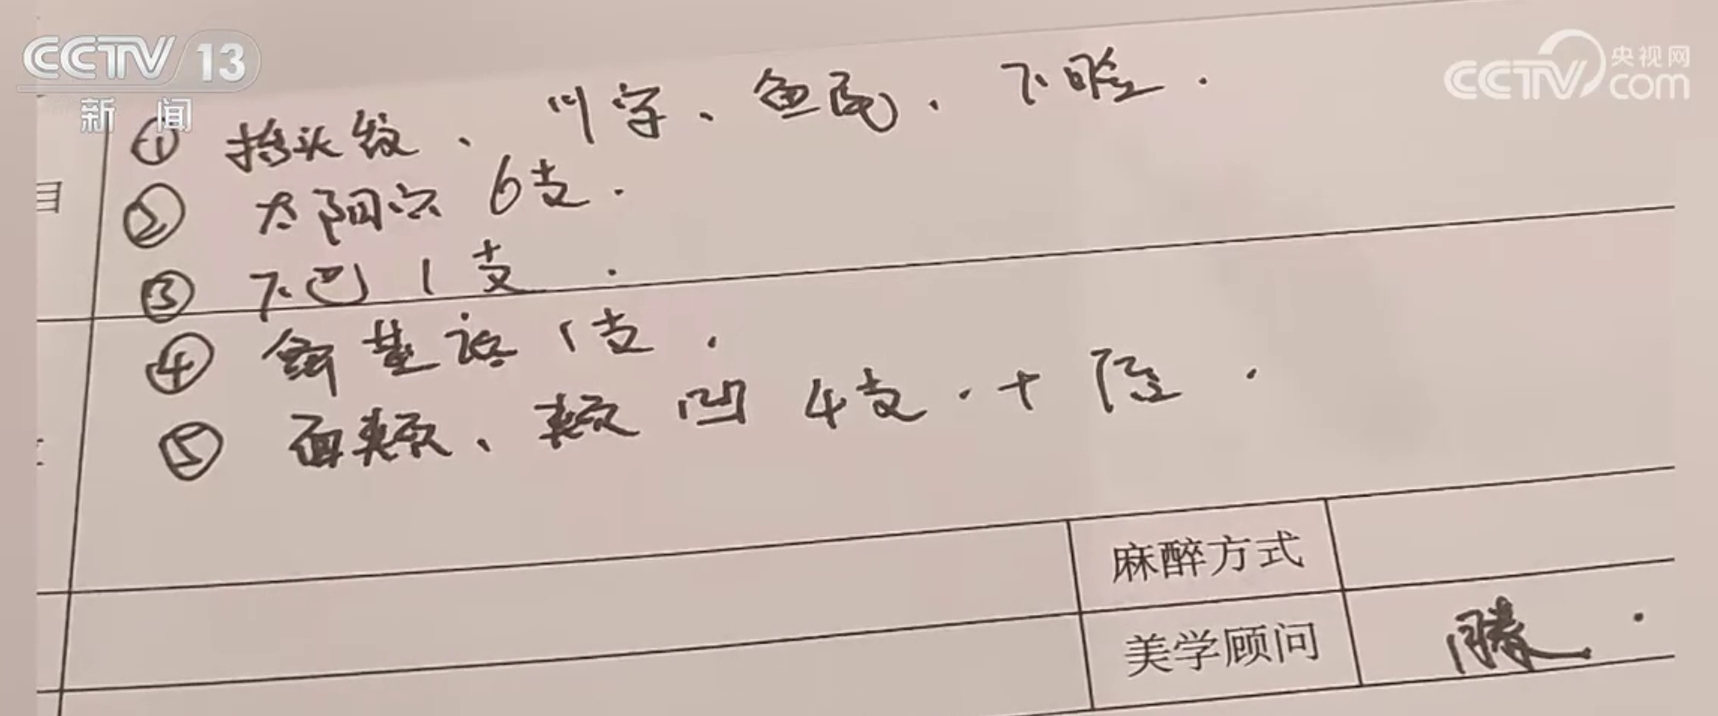 CCTV 13
新闻
央视网
CCTV.com
目
① 抬头纹、川字、鱼尾、下睑.
② 太阳穴 6支.
③ 下巴 1支.
④ 鼻基底 1支.
⑤ 面颊、颊凹 4支.+
麻醉方式
美学顾问 滕.